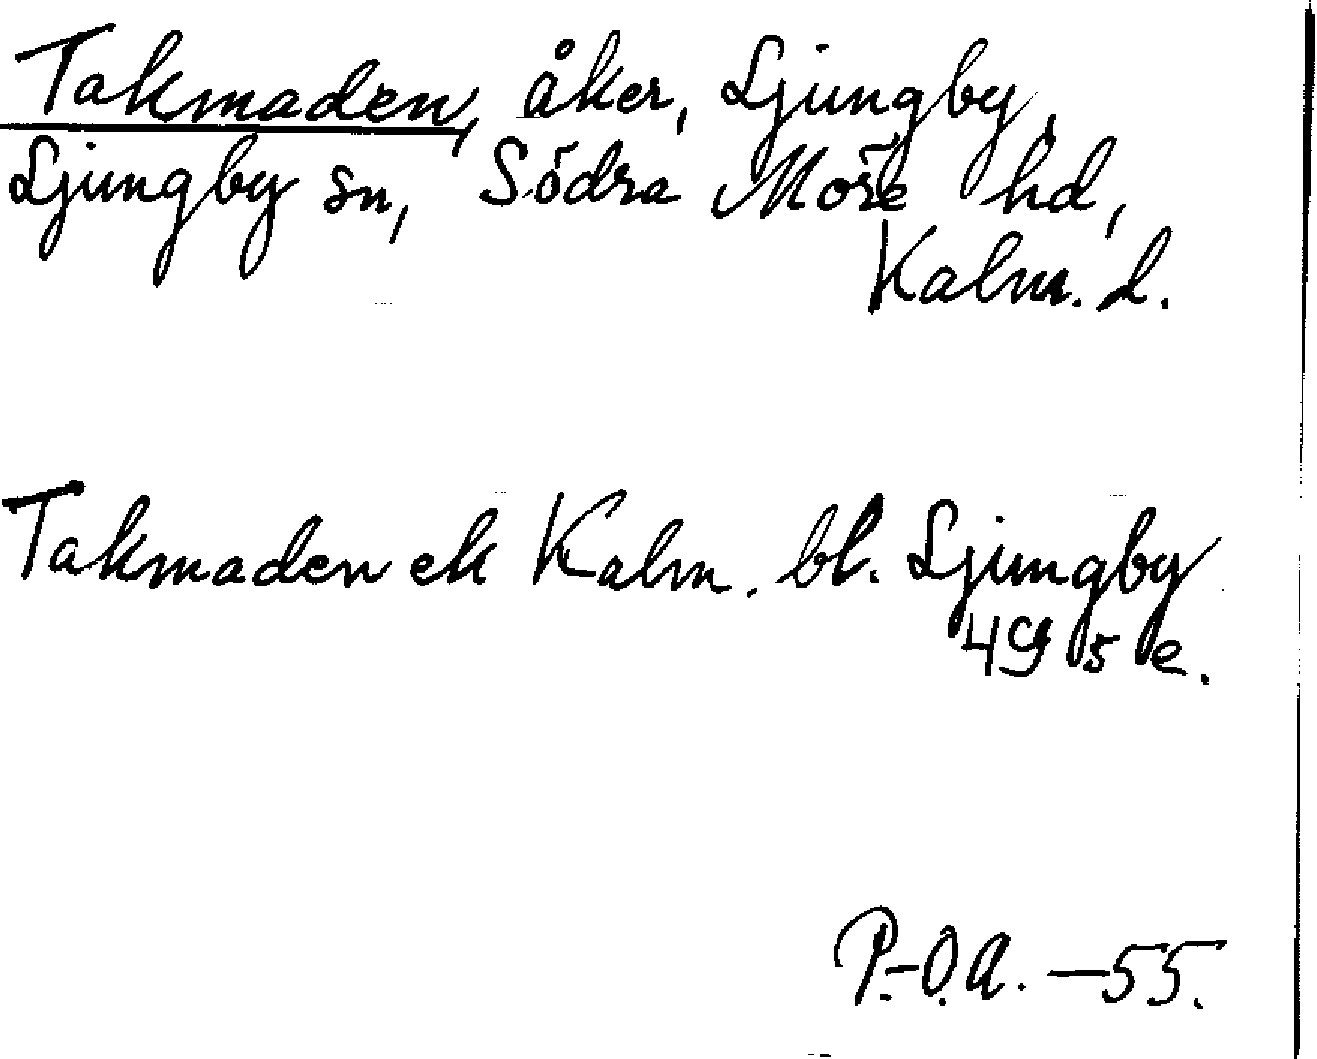 Takmaden, åker, Ljungby,
Ljungby sn, Södra Möre hd,
Kalm. l.
Takmaden ek Kalm. bl. Ljungby
4g 5 e.
P.-O.A. –55.